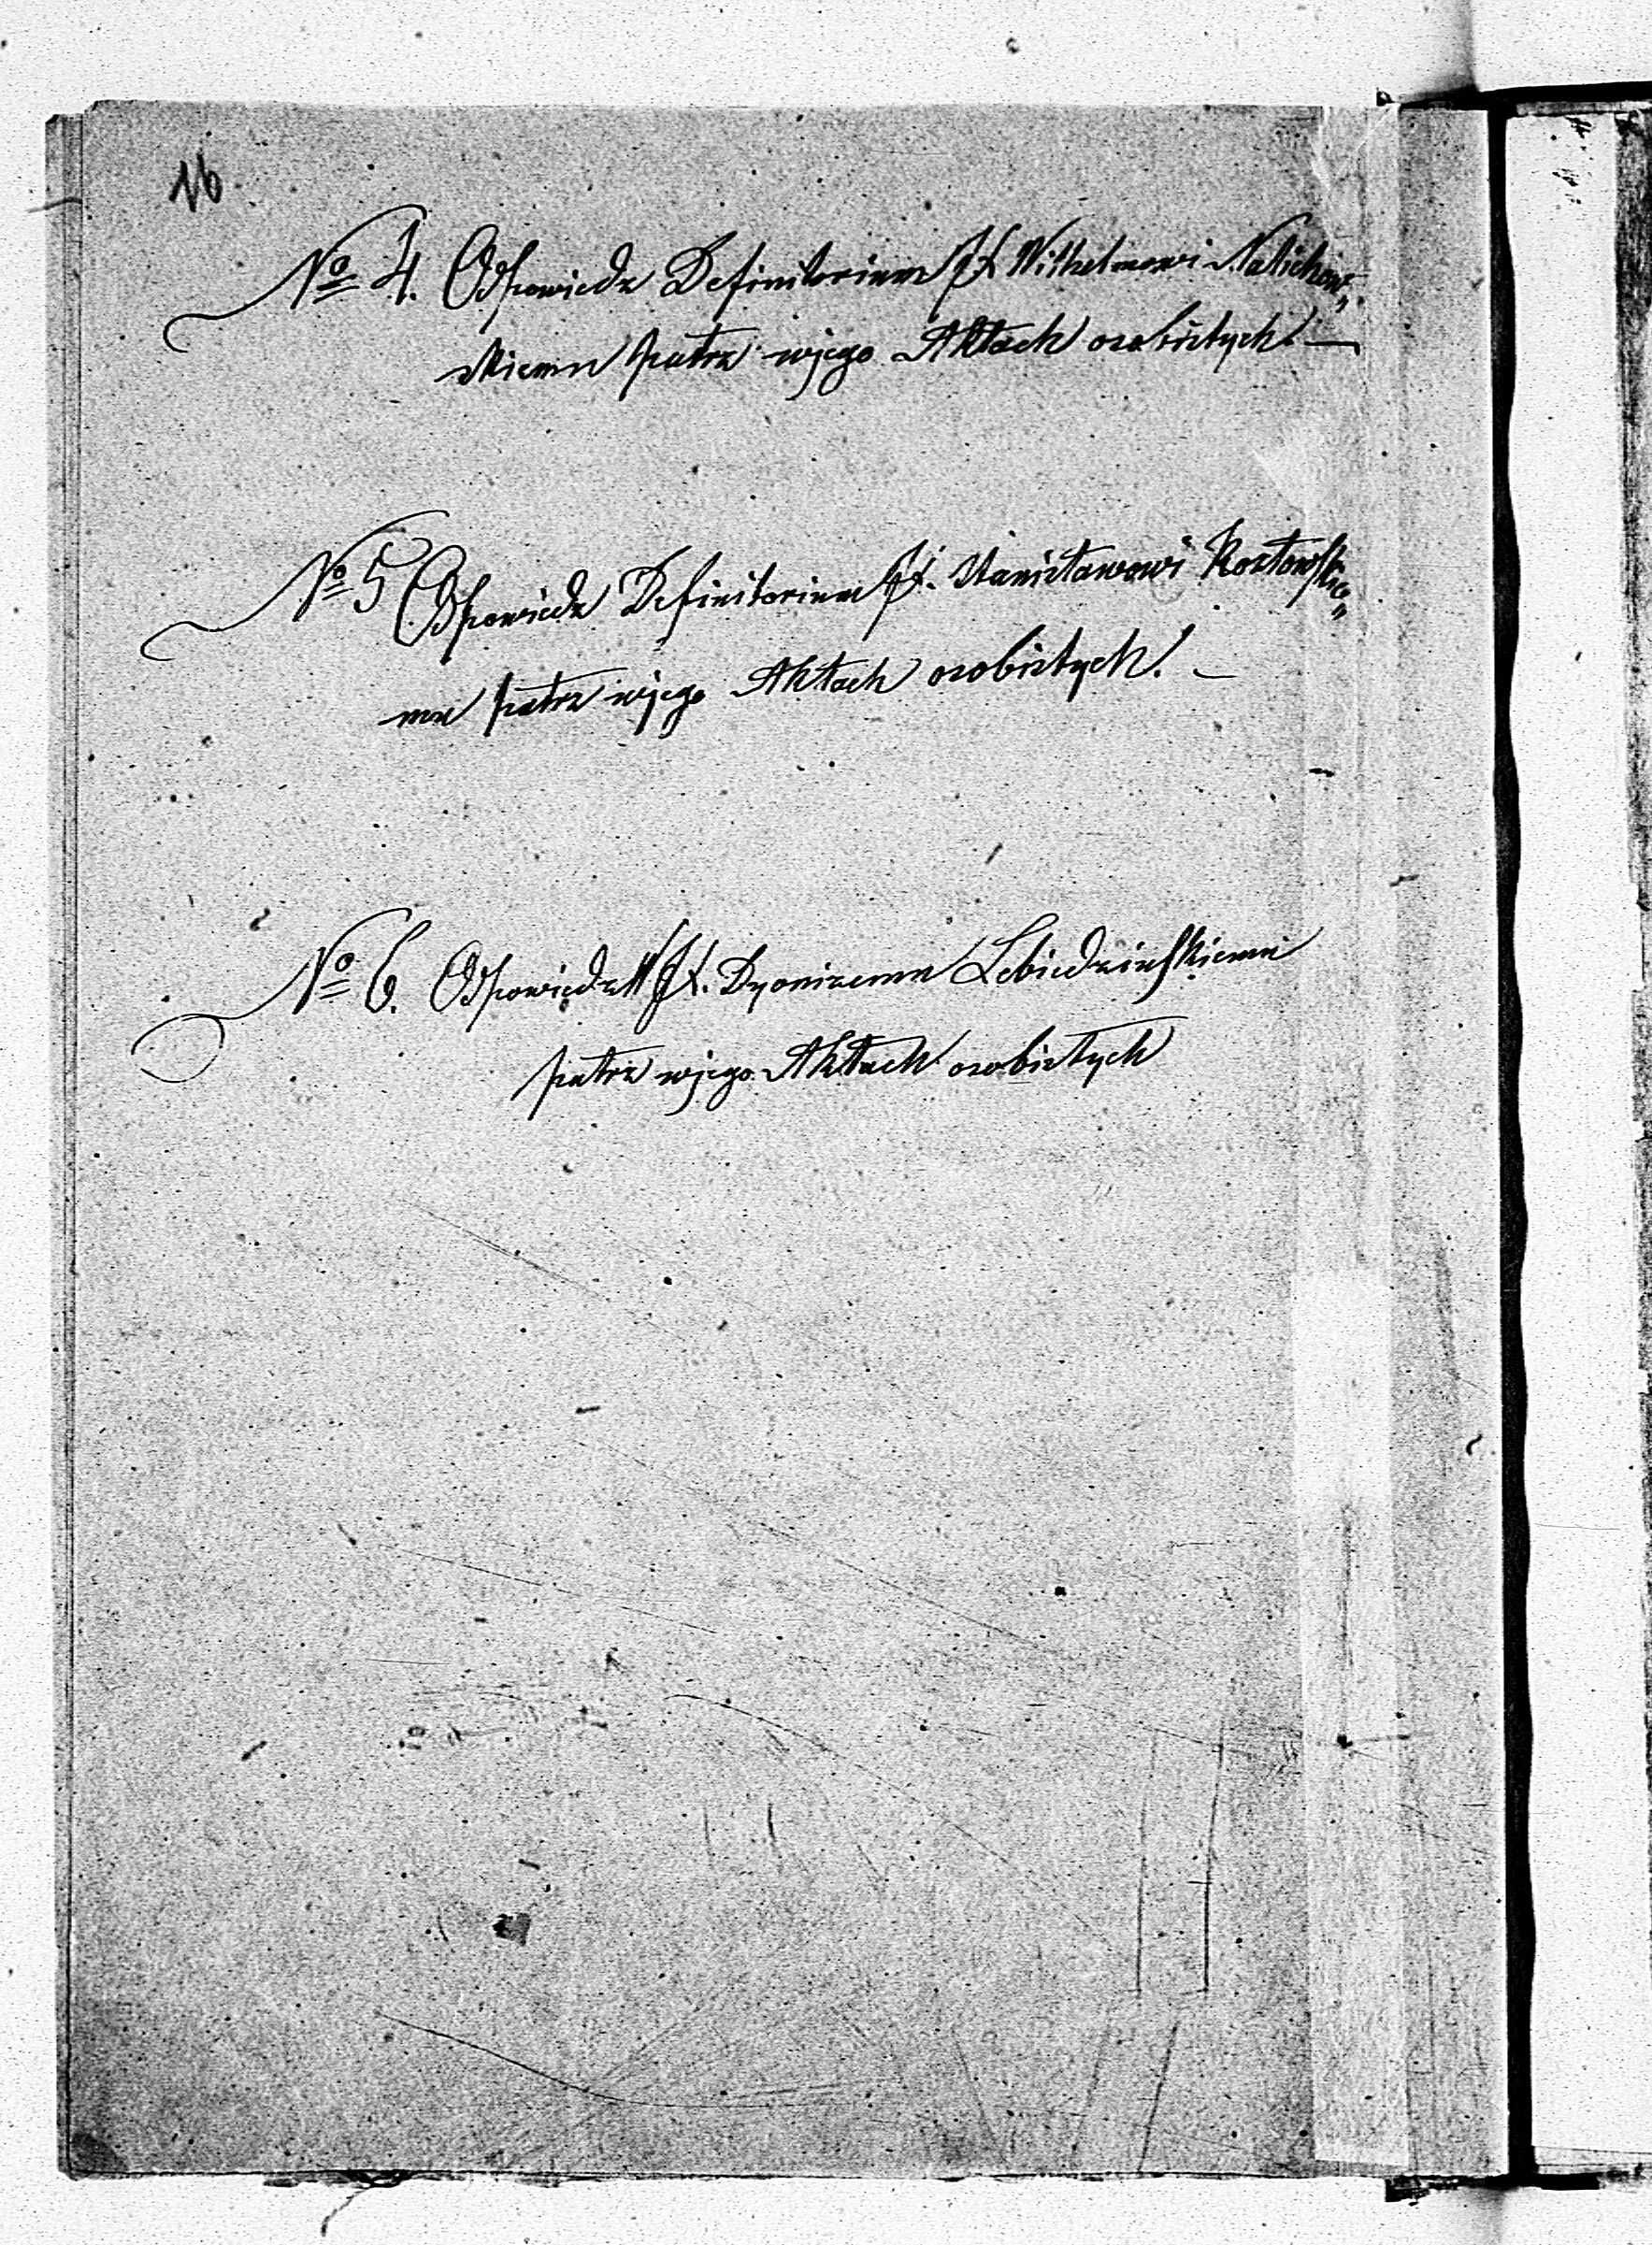 16
No 4. Odpowiedź Definitorium JX Wilhelmowi Malichow„
skiemu patrz wjego Aktach osobistych. —
No 5 Odpowiedz Definitorium JX. Stanisławowi Kozłowskie„
mu patrz wjego Aktach osobistych. —
No 6. Odpowiedz JX. Dyonizemu Lebiedzińskiemu
patrz wjego Aktach osobistych